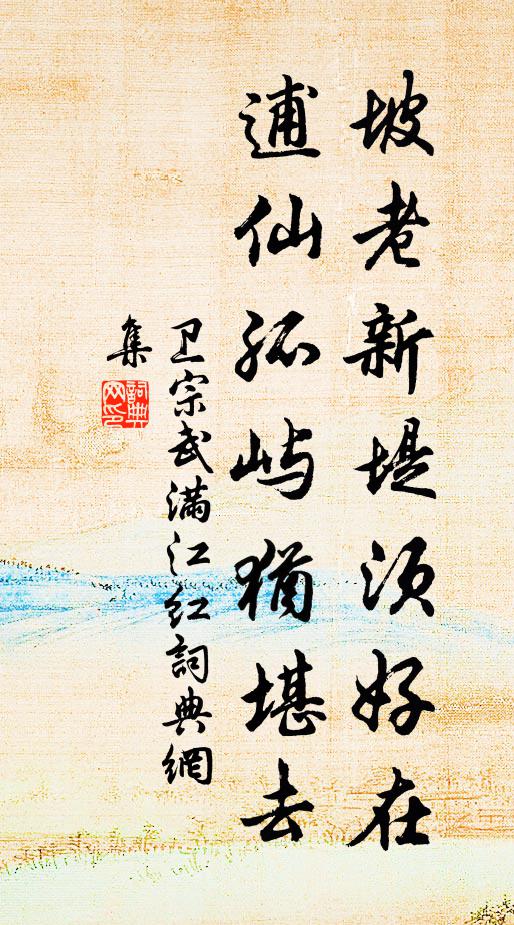 坡老新堤须好在
逋仙孤屿犹堪去
卫宗武满江红词典网
集
词典网印